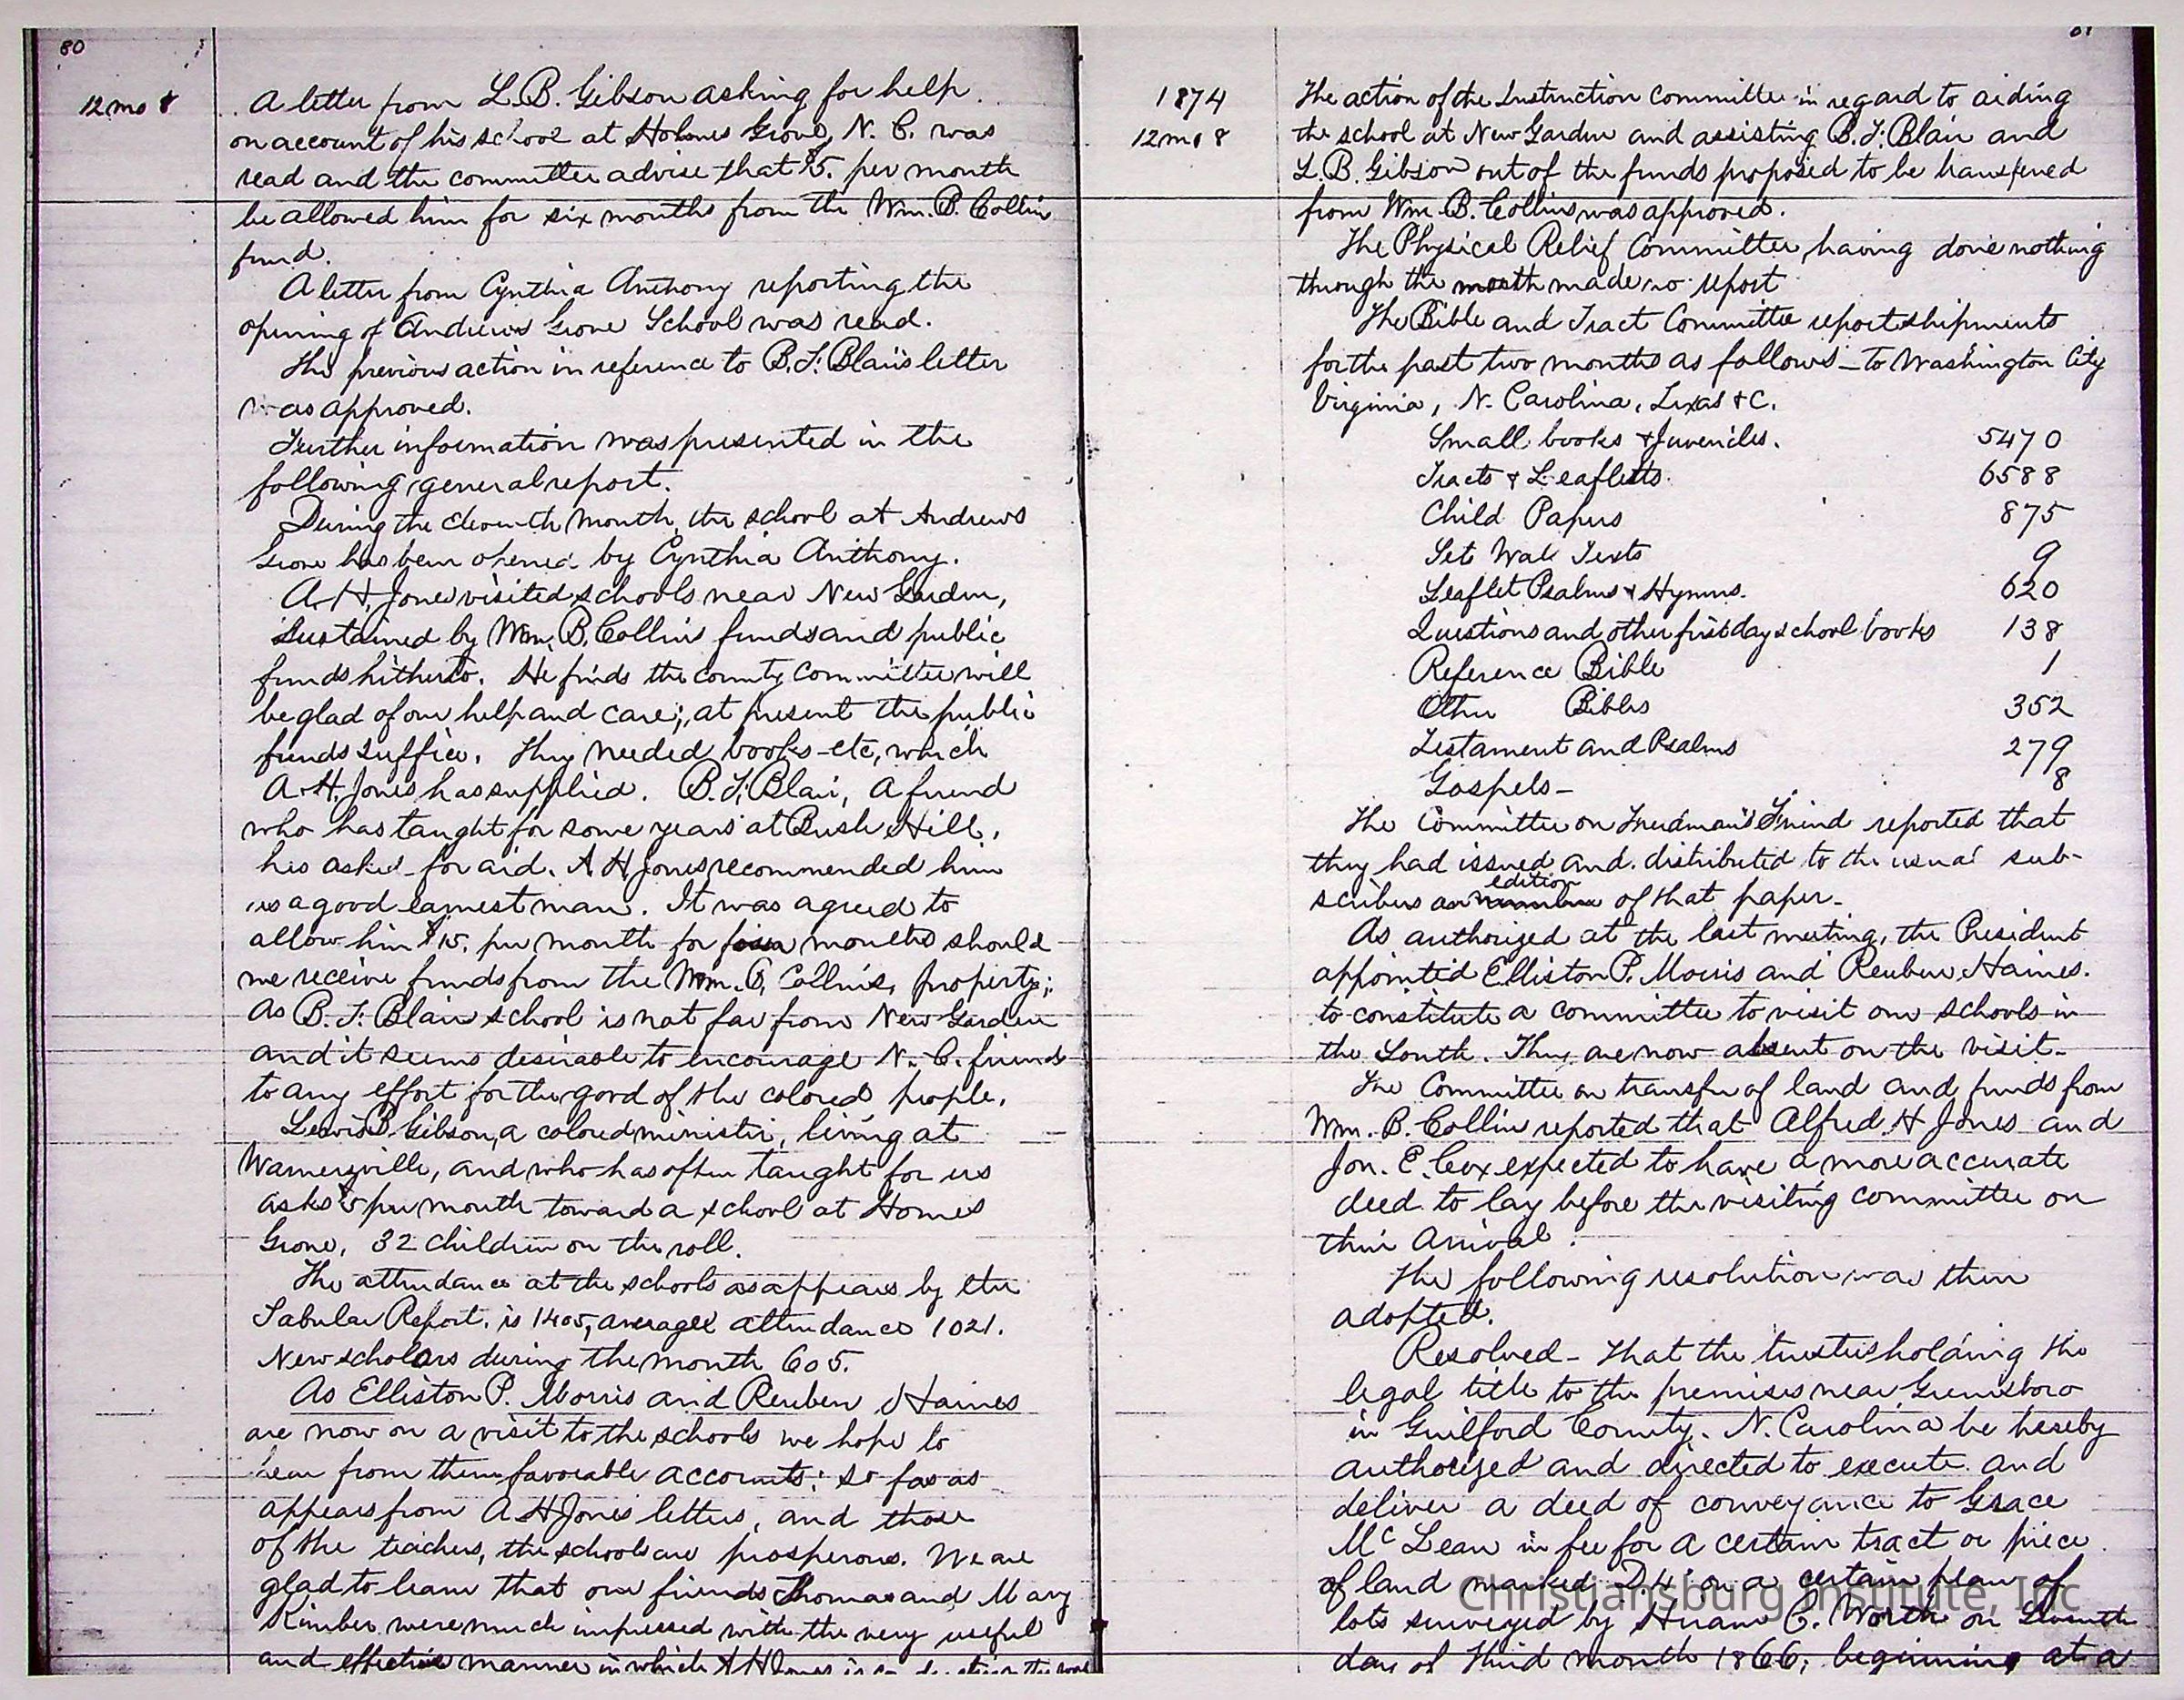 80
12 mo 8
A letter from L. B. Gibson asking for help
on account of his school at Holmes Grove, N. C. was
read and the committee advise that $5. per month
be allowed him for six months from the Wm. B. Collin
fund.
A letter from Cynthia Anthony reporting the
opening of Andrews Grove School was read.
The previous action in reference to B. F. Blair's letter
was approved.
Further information was presented in the
following general report.
During the Eleventh Month, the school at Andrews
Grove has been opened by Cynthia Anthony.
A. H. Jones visited schools near New Garden,
sustained by Wm. B. Collins funds and public
funds hitherto. He finds the county committee will
be glad of our help and care; at present the public
funds suffice. They needed books etc, which
A. H. Jones has supplied. B. F. Blair, a friend
who has taught for some years at Bush Hill,
has asked for aid. A H Jones recommended him
as a good earnest man. It was agreed to
allow him $15. per month for four months should
we receive funds from the Wm. B. Collins, property;
As B. F. Blairs school is not far from New Garden
and it seems desirable to encourage N. C. friends
to any effort for the good of the colored people.
Lewis B Gibson, a colored minister, living at
Warnersville, and who has often taught for us
asks $5 per month toward a school at Homes
Grove, 32 children on the roll.
The attendance at the schools as appears by the
Tabular Report, is 1405, average attendance 1021.
New scholars during the month 605.
As Elliston P. Morris and Reuben Haines
are now on a visit to the schools we hope to
hear from them favorable accounts: so far as
appears from A H Jones letters, and those
of the teachers, the schools are prosperous. We are
glad to learn that our friends Thomas and Mary
Kimber were much impressed with the very useful
and effective manner in which A H Jones is conducting the work
1874
12 mo 8
The action of the Instruction Committee in regard to aiding
the school at New Garden and assisting B. F. Blair and
L. B. Gibson out of the funds proposed to be transferred
from Wm. B. Collins was approved.
The Physical Relief Committee, having done nothing
through the month made no report
The Bible and Tract Committee report shipments
for the past two months as follows - to Washington City
Virginia, N. Carolina, Texas &c.
Small books & Juveniles. 5470
Tracts & Leafletts. 6588
Child Papers 875
Set Wall Texts 9
Leaflet Psalms & Hymns. 620
Questions and other first day school books 138
Reference Bible 1
Other Bibles 352
Testament and Psalms 279
Gospels - 8
The Committee on Freedman's Friend reported that
they had issued and distributed to the usual sub-
scribers an edition of that paper.
As authorized at the last meeting, the President
appointed Elliston P. Morris and Reuben Haines.
to constitute a committee to visit our schools in
the South. They are now absent on the visit.
The Committee on transfer of land and funds from
Wm. B. Collin reported that Alfred H Jones and
Jon. E. Cox expected to have a more accurate
deed to lay before the visiting committee on
their arrival.
The following resolution was then
adopted.
Resolved - That the trustees holding the
legal title to the premises near Greensboro
in Guilford County, N. Carolina be hereby
authorized and directed to execute and
deliver a deed of conveyance to Grace
McLean in fee for a certain tract or piece
of land marked on a certain plan of
lots surveyed by Hiram C. Worth on Eleventh
day of Third month 1866; beginning at a
Christiansburg Institute, Inc